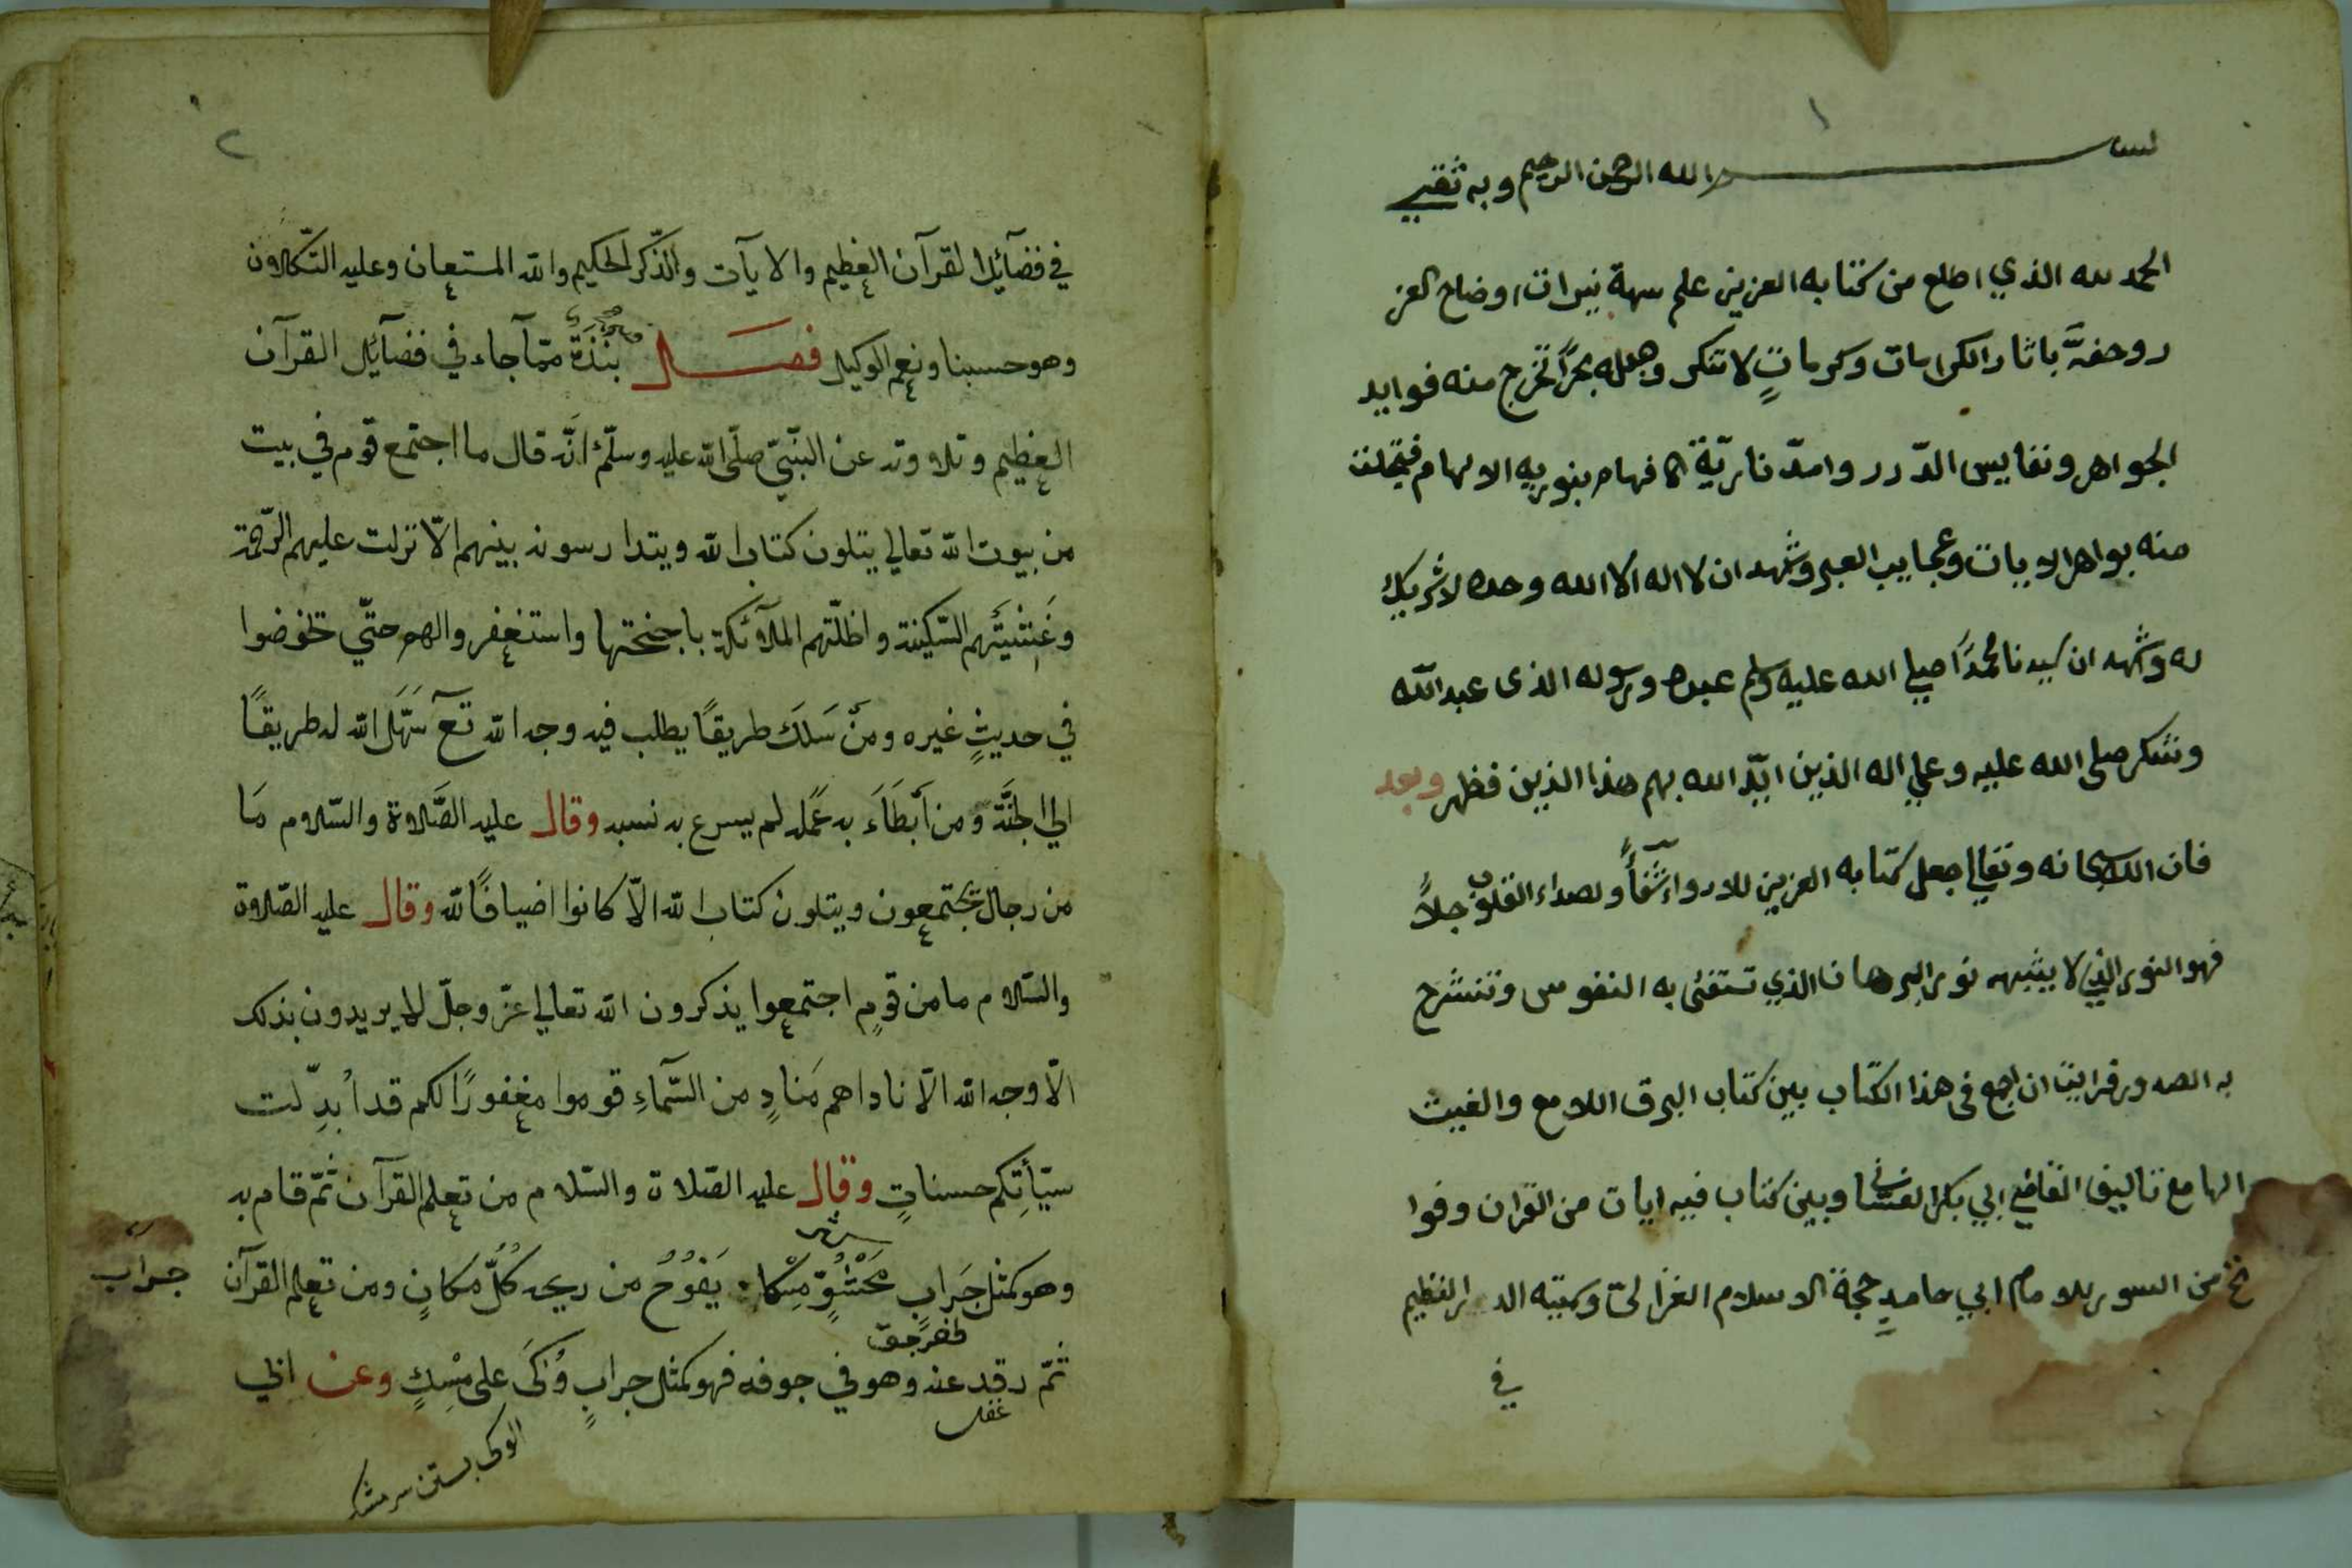 ١
بسم الله الرحمن الرحيم وبه ثقتي
الحمد لله الذي اطلع من كتابه العزيز علم سهة نيرات اوضاح الغر
ر وحفه باثار الكرامات وكرمات لا تنكر وجعله بحراً تخرج منه فوايد
الجواهر ونفايس الدّرر وامدّنا بريّة الافهام بنوريه الالهام فتجلت
منه بواهر الايات وعجايب العبر ونشهد ان لا اله الا الله وحده لا شريك
له ونشهد ان سيدنا محمداً صلي الله عليه وسلم عبده ورسوله الذى عبد الله
وشكر صلى الله عليه وعلي اله الذين ايّد الله بهم هذا الدين فظهر وبعد
فان الله سبحانه وتعالى جعل كتابه العزيز للادواء شفأً ولصداء القلوب جلاءً
فهو النور الذي لا يشبهه نور البرهان الذي تستضئ به النفوس وتنشرح
به الصدور فرايت ان اجمع فى هذا الكتاب بين كتاب البرق اللامع والغيث
الهامع تاليف القاضي ابي بكر الغساني وبين كتاب فيه ايات من القران وفوا
تح من السور للامام ابي حامدٍ حجة الاسلام الغزالى وسميته الدر النظيم
في
٢
في فضآئل القرآن العظيم والايآت والذّكر الحكيم والله المستعان وعليه التّكلان
وهو حسبنا ونعم الوكيل فصل نُبْذَةٌ ممّا جاء في فضآئل القرآن
العظيم وتلاوته عن النّبيّ صلّى الله عليه وسلّم انّه قال ما اجتمع قوم في بيت
من بيوت الله تعالي يتلون كتاب الله ويتدارسونه بينهم الّا نزلت عليهم الرّحمة
وغَشِيَتْهم السّكينة واظلّتهم الملآئكة باجنحتها واستغفروا لهم حتّي تخوضوا
في حديثٍ غيره ومَن سَلَكَ طريقًا يطلب فيه وجه الله تع سَهَّلَ الله له طريقًا
الي الجنَّة ومن أَبْطَاَءَ به عَمَله لم يسرع به نسبه وقال عليه الصَّلاوة والسّلام مَا
من رجال يجتمعون ويتلون كتاب الله الّا كانوا اضيافًا لله وقال عليه الصّلاوة
والسّلام ما من قومٍ اجتمعوا يذكرون الله تعالي عزّ وجلّ لا يريدون بذلك
الّا وجه الله الّا ناداهم مَنادٍ من السّمآءِ قوموا مغفورًا لكم قد اُبدِّلت
سيّأتِكم حسناتٍ وقال عليه الصّلاة والسّلام من تعلم القرآن ثمّ قام به
وهو كمثل جَرابٍ مَحْشُوٍّ مِسْكا يَفُوُحُ من ريحه كُلُّ مَكانٍ ومن تعلم القرآن
جراب
ثمّ رقد عنه وهو في جوفه فهو كمثل جرابٍ وُكَىَ على مِسْكٍ وعن ابي
غفل
الوكى بستن سر مشك